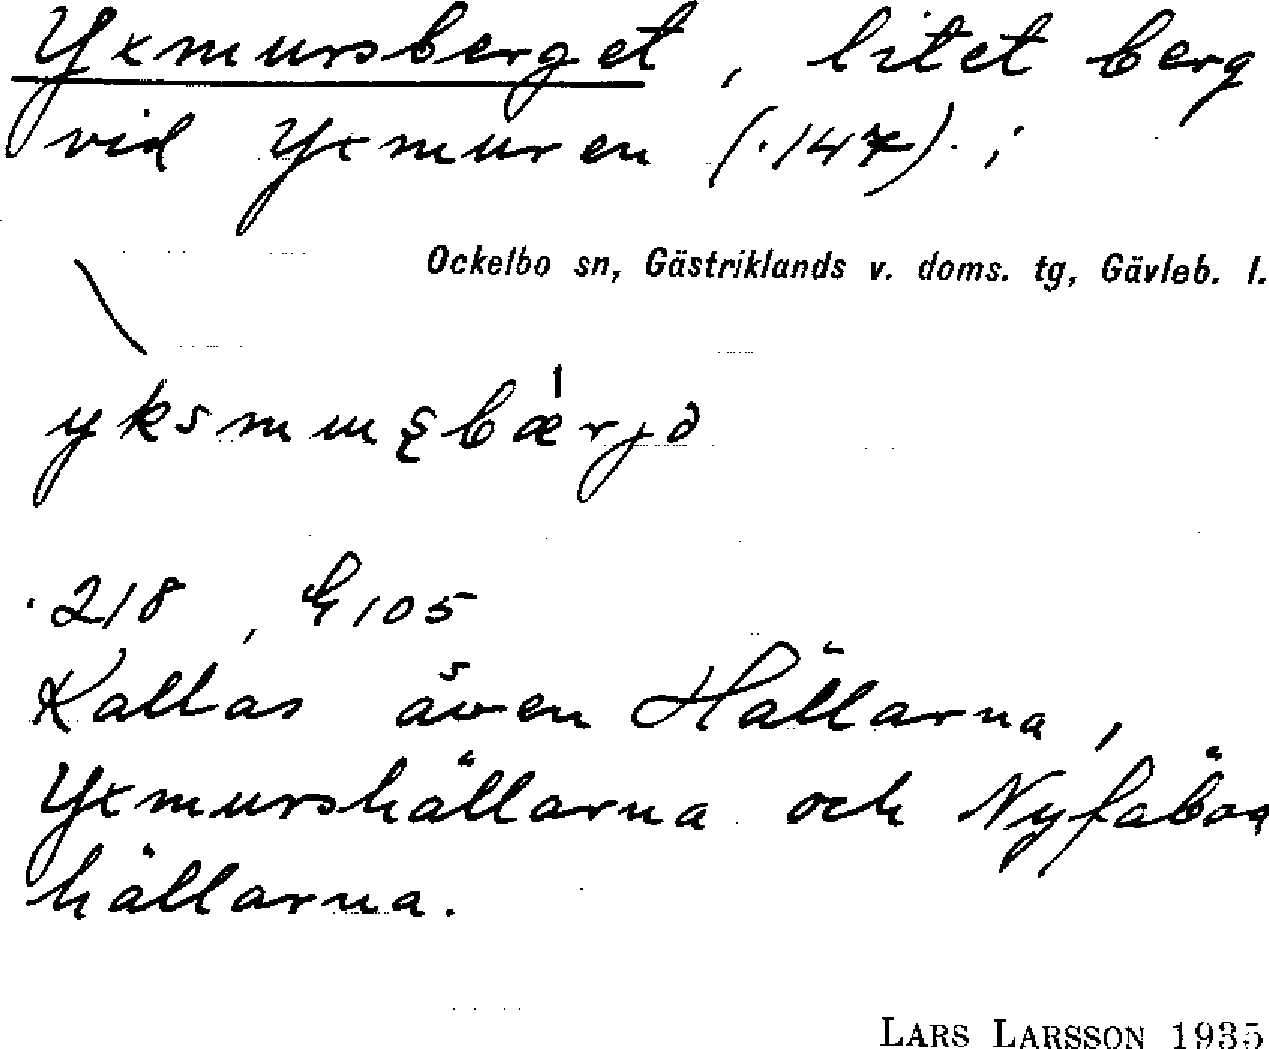 Yxmursberget, litet berg
vid Yxmuren (.147). ;
Ockelbo sn, Gästriklands v. doms. tg, Gävleb. l.
.218, E105
Kallas även Hällarna,
Yxmurshällarna och
hällarna.
LARS LARSSON 1935